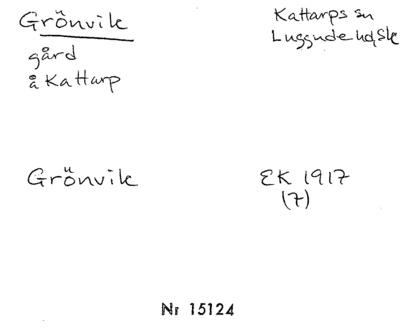 Grönvik
Kattarps sn
gård
Luggude hd, Sk
å Kattarp
Grönvik
EK 1917
(7)
Nr 15124